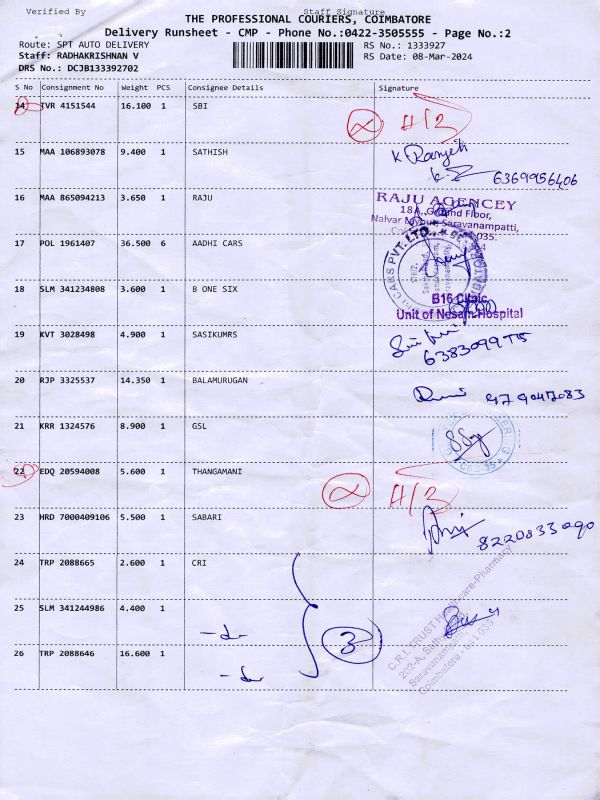 Verified By Staff Signature
THE PROFESSIONAL COURIERS, COIMBATORE
Delivery Runsheet - CMP - Phone No.:0422-3505555 - Page No.:2
Route: SPT AUTO DELIVERY RS No.: 1333927
Staff: RADHAKRISHNAN V RS Date: 08-Mar-2024
DRS No.: DCJB133392702
S No Consignment No Weight PCS Consignee Details Signature
14 TVR 4151544 16.100 1 SBI
15 MAA 106893078 9.400 1 SATHISH
K Ranjith
6369956406
16 MAA 865094213 3.650 1 RAJU
RAJU AGENCEY
18A, Ground Floor,
Nalvar Layout, Saravanampatti,
17 POL 1961407 36.500 6 AADHI CARS
CARS PVT. LTD.
18 SLM 341234808 3.600 1 B ONE SIX
B16 Clinic
Unit of Nesam Hospital
19 KVT 3028498 4.900 1 SASIKUMRS
20 RJP 3325537 14.350 1 BALAMURUGAN
21 KRR 1324576 8.900 1 GSL
22 EDQ 20594008 5.600 1 THANGAMANI
23 HRD 7000409106 5.500 1 SABARI
24 TRP 2088665 2.600 1 CRI
25 SLM 341244986 4.400 1
3
26 TRP 2088646 16.600 1
C.R.I. TRUST Healthcare-Pharmacy
Coimbatore - 641 035